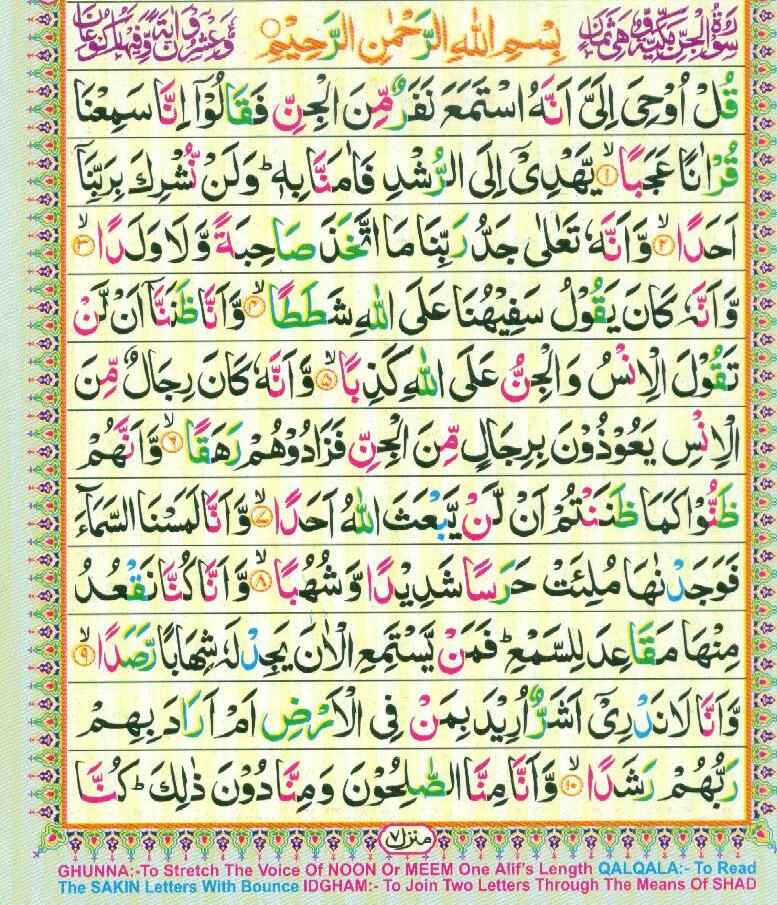 سُوْرَةُ الْجِنِّ مَكِّيَّةٌ وَّهِىَ ثَمَانٍ
بِسْمِ اللهِ الرَّحْمٰنِ الرَّحِيْمِ
وَّعِشْرُوْنَ اٰيَةً وَّفِيْهَا رُكُوْعَانِ
قُلْ اُوْحِىَ اِلَىَّ اَنَّهُ اسْتَمَعَ نَفَرٌ مِّنَ الْجِنِّ فَقَالُوْٓا اِنَّا سَمِعْنَا
قُرْاٰنًا عَجَبًا ۙ‏﴿۱﴾ يَّهْدِىْٓ اِلَى الرُّشْدِ فَاٰمَنَّا بِهٖ ؕ وَلَنْ نُّشْرِكَ بِرَبِّنَاۤ
اَحَدًا ۙ‏﴿۲﴾ وَّاَنَّهٗ تَعٰلٰى جَدُّ رَبِّنَا مَا اتَّخَذَ صَاحِبَةً وَّلَا وَلَدًا ۙ‏﴿۳﴾
وَّاَنَّهٗ كَانَ يَقُوْلُ سَفِيْهُنَا عَلَى اللهِ شَطَطًا ۙ‏﴿۴﴾ وَّاَنَّا ظَنَنَّاۤ اَنْ لَّنْ
تَقُوْلَ الْاِنْسُ وَالْجِنُّ عَلَى اللهِ كَذِبًا ۙ‏﴿۵﴾ وَّاَنَّهٗ كَانَ رِجَالٌ مِّنَ
الْاِنْسِ يَعُوْذُوْنَ بِرِجَالٍ مِّنَ الْجِنِّ فَزَادُوْهُمْ رَهَقًا ۙ‏﴿۶﴾ وَّاَنَّهُمْ
ظَنُّوْا كَمَا ظَنَنْتُمْ اَنْ لَّنْ يَّبْعَثَ اللهُ اَحَدًا ۙ‏﴿۷﴾ وَّاَنَّا لَمَسْنَا السَّمَآءَ
فَوَجَدْنٰهَا مُلِئَتْ حَرَسًا شَدِيْدًا وَّشُهُبًا ۙ‏﴿۸﴾ وَّاَنَّا كُنَّا نَقْعُدُ
مِنْهَا مَقَاعِدَ لِلسَّمْعِ ؕ فَمَنْ يَّسْتَمِعِ الْاٰنَ يَجِدْ لَهٗ شِهَابًا رَّصَدًا ۙ‏﴿۹﴾
وَّاَنَّا لَا نَدْرِىْٓ اَشَرٌّ اُرِيْدَ بِمَنْ فِى الْاَرْضِ اَمْ اَرَادَ بِهِمْ
رَبُّهُمْ رَشَدًا ۙ‏﴿۱۰﴾ وَّاَنَّا مِنَّا الصّٰلِحُوْنَ وَمِنَّا دُوْنَ ذٰلِكَ ؕ كُنَّا
منزل ۷
GHUNNA:-To Stretch The Voice Of NOON Or MEEM One Alif's Length QALQALA:- To Read
The SAKIN Letters With Bounce IDGHAM:- To Join Two Letters Through The Means Of SHAD